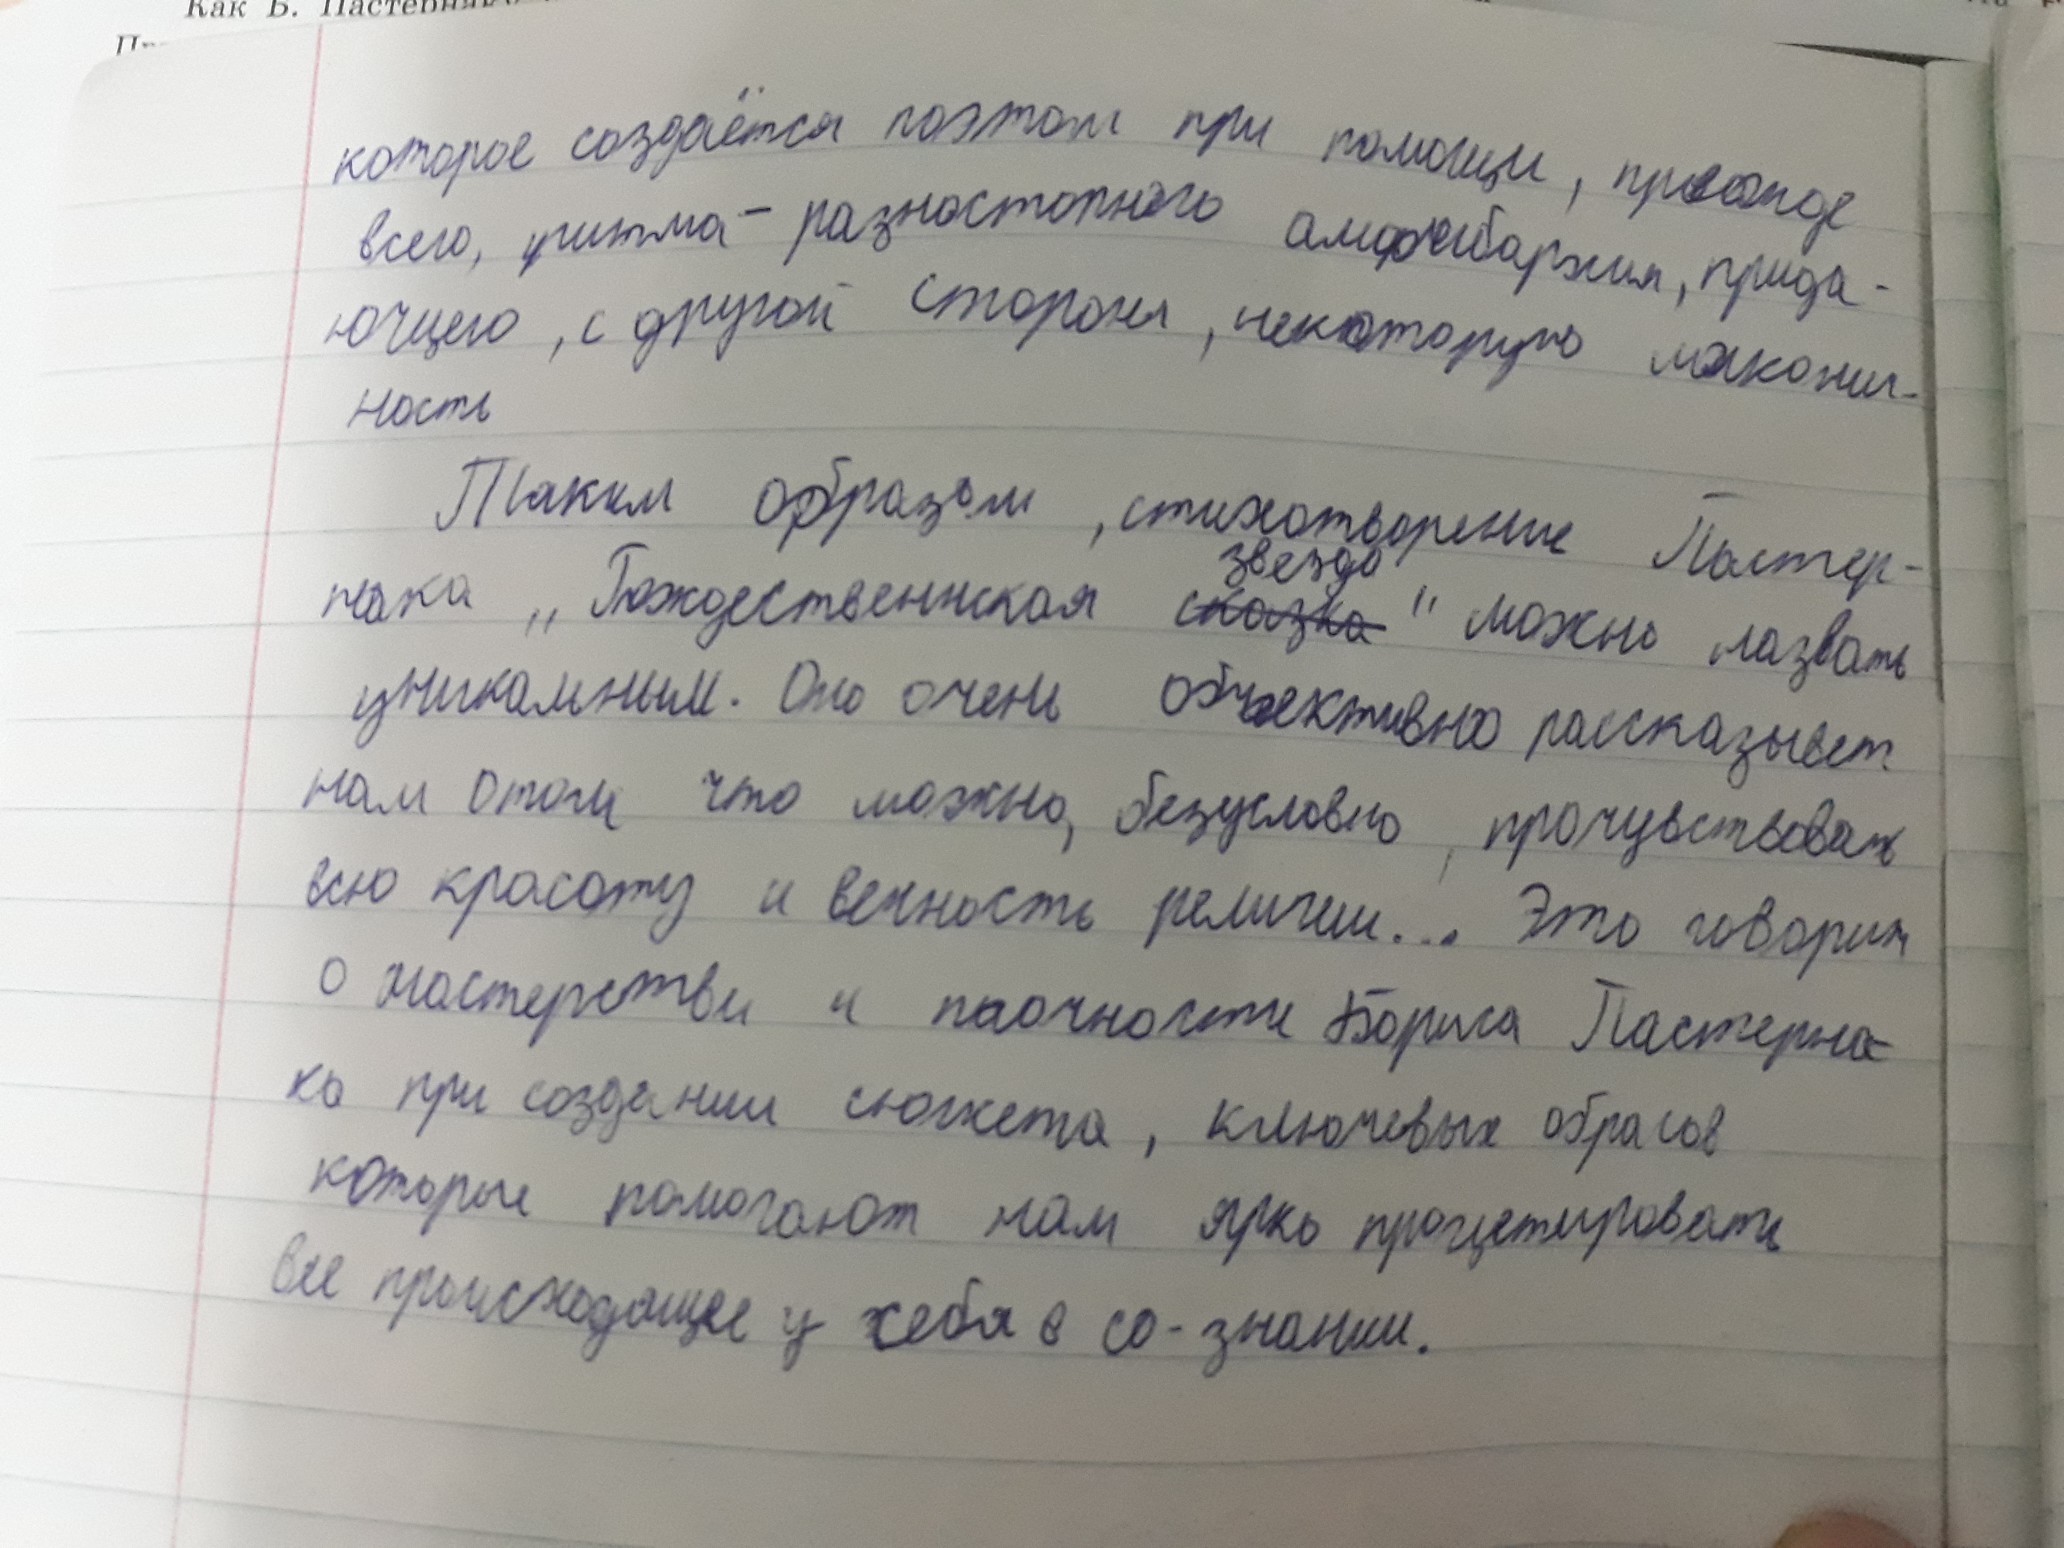 Как Б. Пастернак
которое создаётся поэтом при помощи, прежде
всего, ритма - разностопного амфибархия, прида-
ющего, с другой стороны, некоторую лаконич-
ность
Таким образом, стихотворение Пастер-
нака „Рождественнская сказка звезда" можно назвать
уникальным. Оно очень объективно рассказывет
нам о том что можно, безусловно, прочувствовать
всю красоту и вечность религии... Это говорит
о мастерстви и Бориса Пастерна-
ка при создании сюжета, ключевых образов
которые помогают нам ярко процетировать
все происходящее у себя в со-знании.